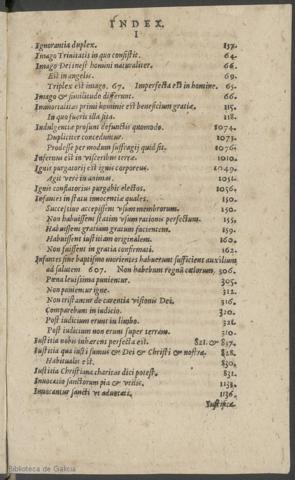 INDEX.
I
Ignorantia duplex. 157.
Imago Trinitatis in quo consistit. 64.
Imago Dei inest homini naturaliter. 66.
Est in angelis. 69.
Triplex est imago. 67. Imperfecta est in homine. 65.
Imago & similitudo differunt. 66.
Immortalitas primi hominis est beneficium gratiæ. 115.
In quo fuerit illa sita. 118.
Indulgentiæ prosunt defunctis quomodo. 1074.
Dupliciter conceduntur. 1073.
Prodesse per modum suffragij quid sit. 1076.
Infernus est in visceribus terræ. 1010.
Ignis purgatorij est ignis corporeus. 1049.
Agit vere in animas. 1051.
Ignis conflatorius purgabit electos. 1056.
Infantes in statu innocentiæ quales. 150.
Successiue accepissent vsum membrorum. 150.
Non habuissent statim vsum rationis perfectum. 155.
Habuissent gratiam gratum facientem. 159.
Habuissent iustitiam originalem. 160.
Non fuissent in gratia confirmati. 162.
Infantes sine baptismo morientes habuerunt sufficiens auxilium
ad salutem 607. Non habebunt regnũ cælorum. 306.
Pœna leuissima punientur. 305.
Non punientur igne. 312.
Non tristantur de carentia visionis Dei. 316.
Comparebunt in iudicio. 320.
Post iudicium erunt in limbo. 321.
Post iudicium non erunt super terram. 310.
Iustitia nobis inhærens perfecta est. 821. & 837.
Iustitia qua iusti sumus & Dei & Christi & nostra. 828.
Habitualis est. 830.
Iustitia Christiana charitas dici potest. 831.
Inuocatio sanctorum pia & vtilis. 1138.
Inuocantur sancti vt aduocati. 1136.
Iustifica
Biblioteca de Galicia